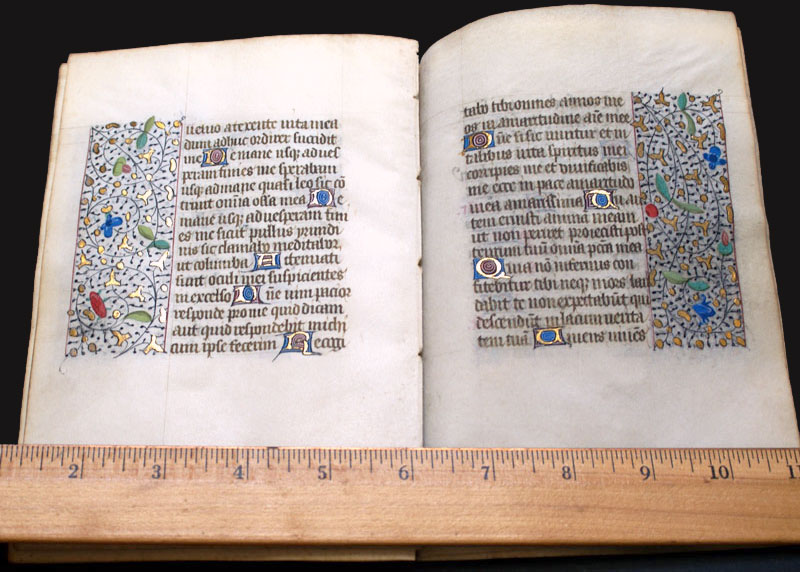 uelud a texente uita mea
dum adhuc ordirer succidit
me De mane usq; ad ues
peram finies me sperabam
usq; ad mane quasi leo sic cō
triuit om̄ia ossa mea De
mane usq; ad uesperam fini
es me sicut pullus yrundi
nis sic clamabo meditabor
ut columba Attenuati
sunt oculi mei suspicientes
in excelso Dn̄e uim pacior
responde pro me quid dicam
aut quid respondebit michi
cum ipse fecerim Recogi
tabo tibi omnes annos me
os in amaritudine aīe mee
Dn̄e si sic uiuitur et in
talibus uita spiritus mei
corripies me et uiuificabis
me ecce in pace amaritudo
mea amarissima Tu au
tem eruisti animā meam
ut non periret proiecisti post
tergum tuū om̄ia pc̄cā mea
Quia nō infernus con
fitebitur tibi neq; mors lau
dabit te non expectabūt qui
descendūt in lacum uerita
tem tuā Uiuens uiuēs
2 3 4 5 6 7 8 9 10 11